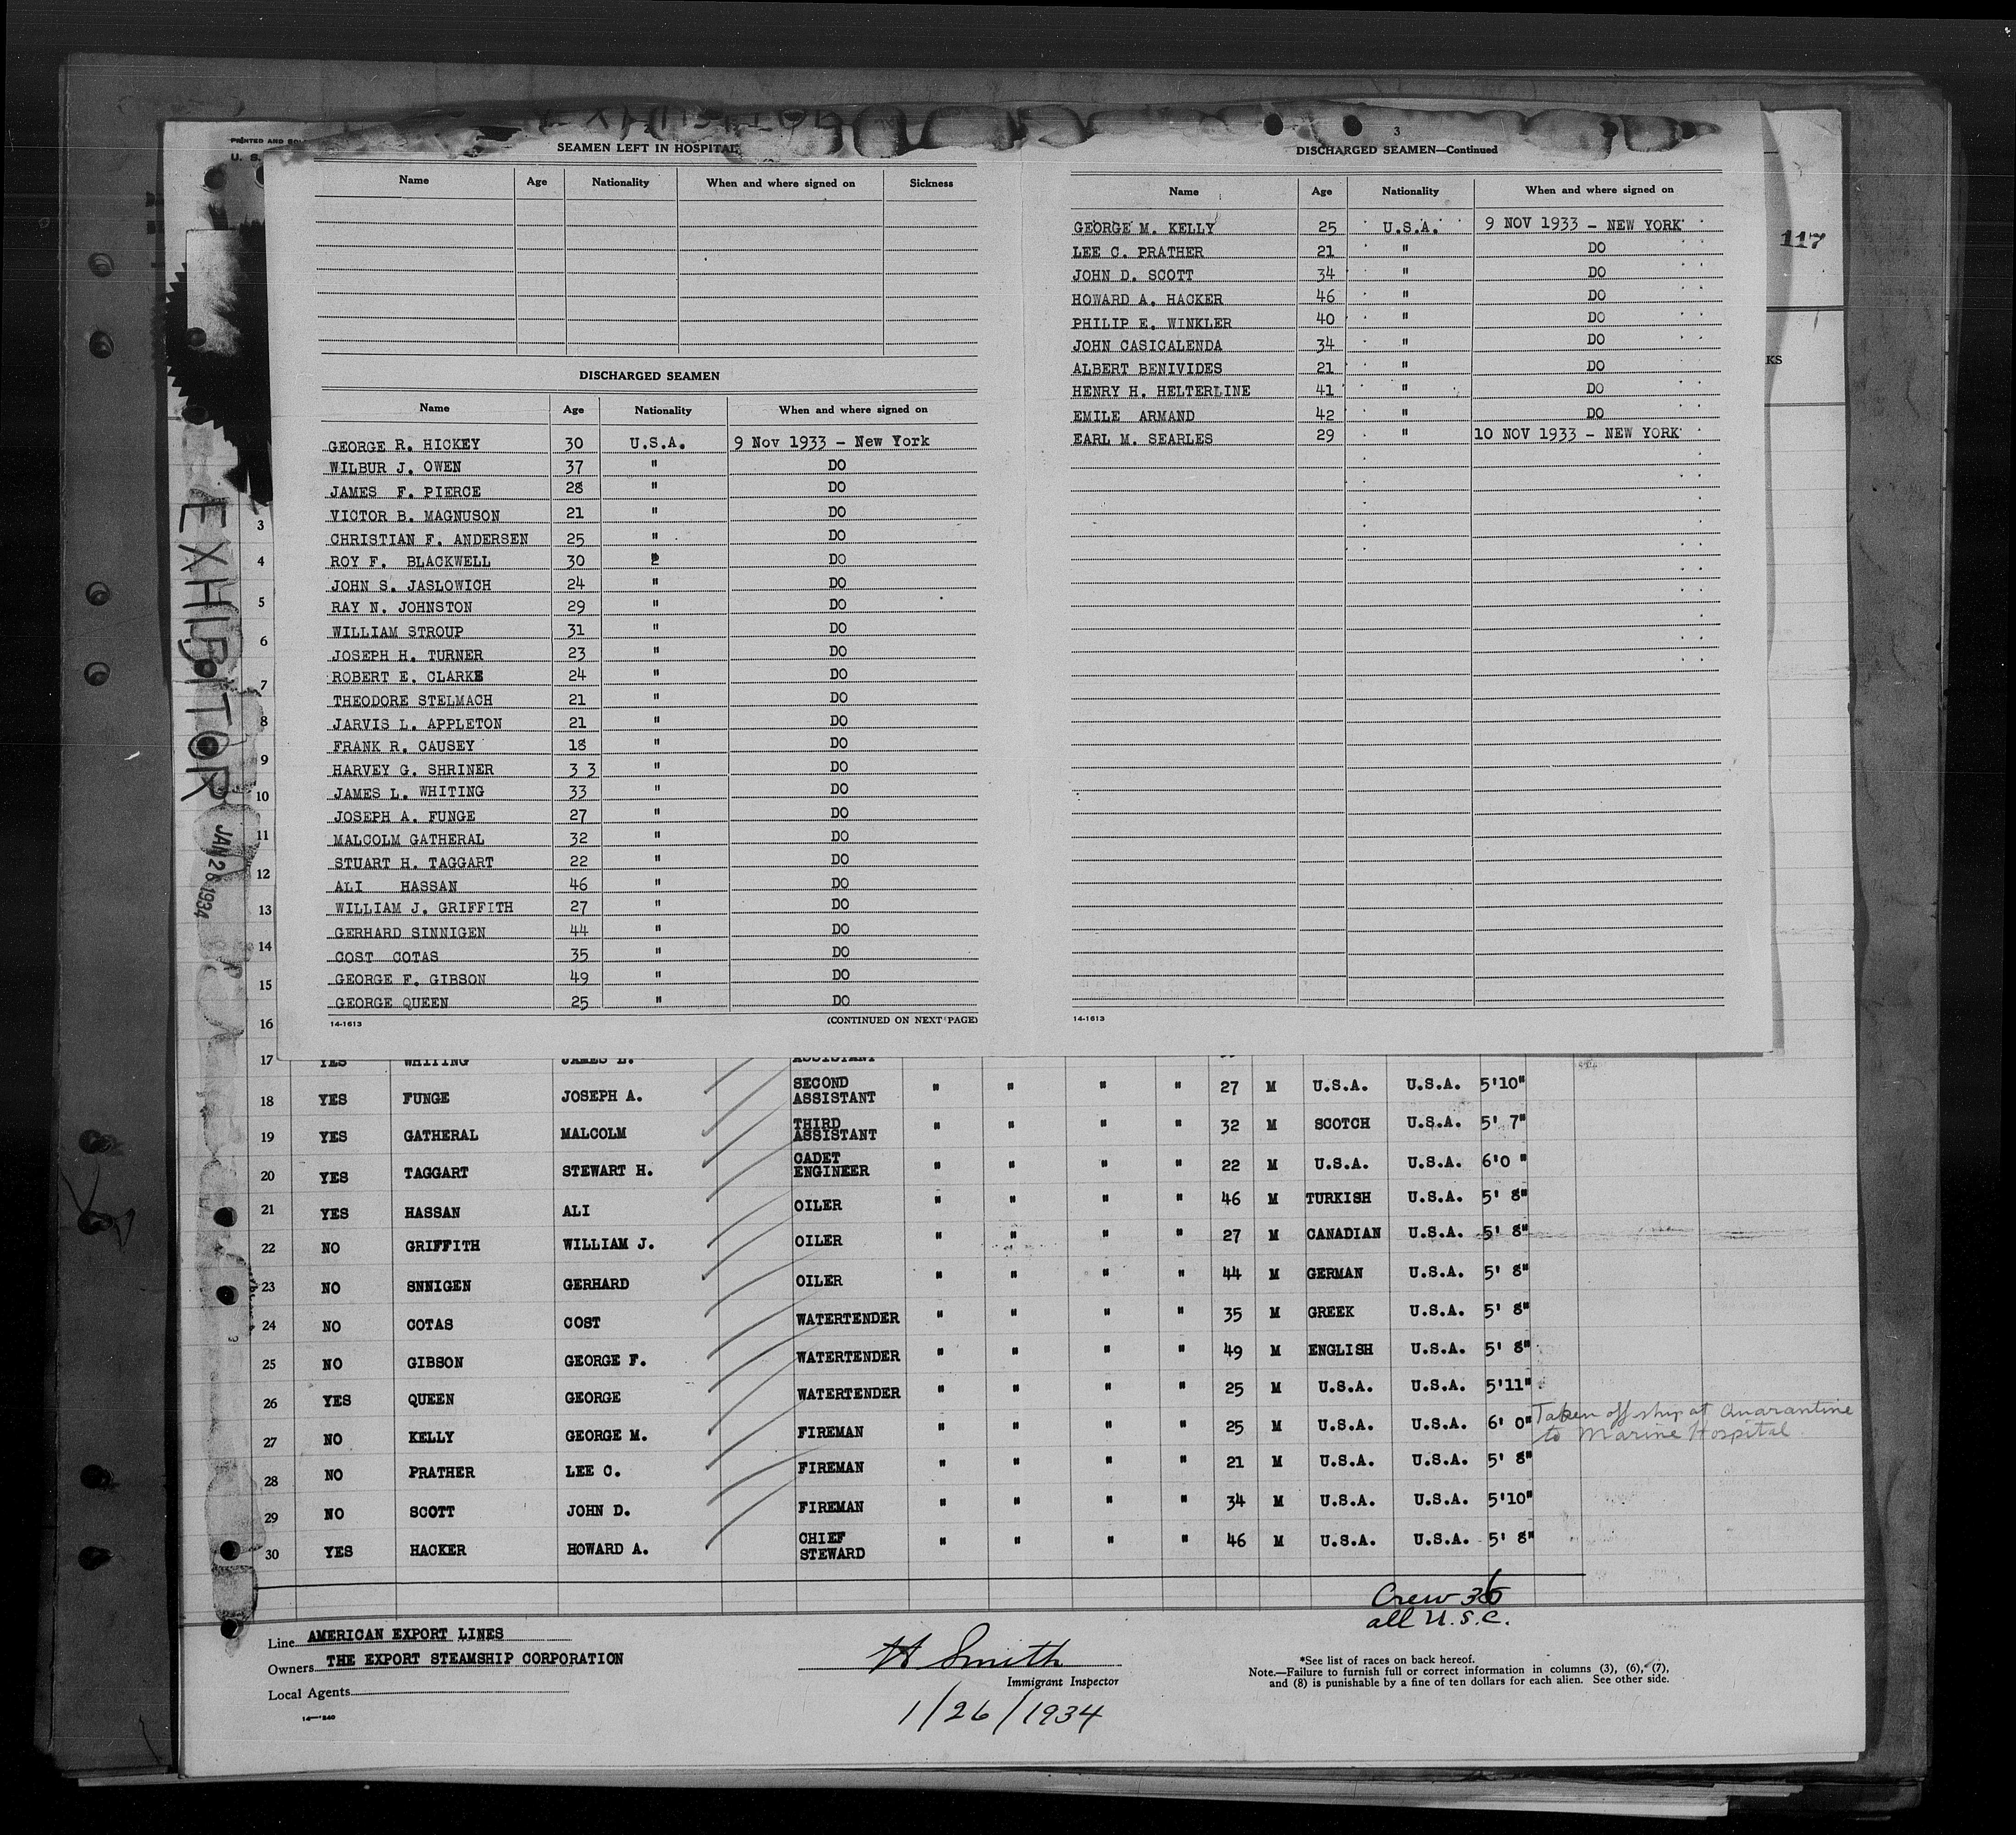 PRINTED AND
U. S.
SEAMEN LEFT IN HOSPITAL
Name Age Nationality When and where signed on Sickness
DISCHARGED SEAMEN
Name Age Nationality When and where signed on
GEORGE R. HICKEY 30 U.S.A. 9 Nov 1933 - New York
WILBUR J. OWEN 37 " DO
JAMES F. PIERCE 28 " DO
VICTOR B. MAGNUSON 21 " DO
CHRISTIAN F. ANDERSEN 25 " DO
ROY F. BLACKWELL 30 DO
JOHN S. JASLOWICH 24 " DO
RAY N. JOHNSTON 29 " DO
WILLIAM STROUP 31 " DO
JOSEPH H. TURNER 23 " DO
ROBERT E. CLARKE 24 " DO
THEODORE STELMACH 21 " DO
JARVIS L. APPLETON 21 " DO
FRANK R. CAUSEY 18 " DO
HARVEY G. SHRINER 3 3 " DO
JAMES L. WHITING 33 " DO
JOSEPH A. FUNGE 27 " DO
MALCOLM GATHERAL 32 " DO
STUART H. TAGGART 22 " DO
ALI HASSAN 46 " DO
WILLIAM J. GRIFFITH 27 " DO
GERHARD SINNIGEN 44 " DO
COST COTAS 35 " DO
GEORGE F. GIBSON 49 " DO
GEORGE QUEEN 25 " DO
14-1613 (CONTINUED ON NEXT PAGE)
3
DISCHARGED SEAMEN—Continued
Name Age Nationality When and where signed on
GEORGE M. KELLY 25 U.S.A. 9 NOV 1933 - NEW YORK
LEE C. PRATHER 21 " DO
JOHN D. SCOTT 34 " DO
HOWARD A. HACKER 46 " DO
PHILIP E. WINKLER 40 " DO
JOHN CASICALENDA 34 " DO
ALBERT BENIVIDES 21 " DO
HENRY H. HELTERLINE 41 " DO
EMILE ARMAND 42 " DO
EARL M. SEARLES 29 " 10 NOV 1933 - NEW YORK
14-1613
117
KS
EXHIBITOR
JAN 26 1934
3
4
5
6
7
8
9
10
11
12
13
14
15
16
17 YES WHITING JAMES L. ASSISTANT
18 YES FUNGE JOSEPH A. SECOND ASSISTANT " " " " 27 M U.S.A. U.S.A. 5'10"
19 YES GATHERAL MALCOLM THIRD ASSISTANT " " " " 32 M SCOTCH U.S.A. 5' 7"
20 YES TAGGART STEWART H. CADET ENGINEER " " " " 22 M U.S.A. U.S.A. 6'0 "
21 YES HASSAN ALI OILER " " " " 46 M TURKISH U.S.A. 5' 8"
22 NO GRIFFITH WILLIAM J. OILER " " " " 27 M CANADIAN U.S.A. 5' 8"
23 NO SNNIGEN GERHARD OILER " " " " 44 M GERMAN U.S.A. 5' 8"
24 NO COTAS COST WATERTENDER " " " " 35 M GREEK U.S.A. 5' 8"
25 NO GIBSON GEORGE F. WATERTENDER " " " " 49 M ENGLISH U.S.A. 5' 8"
26 YES QUEEN GEORGE WATERTENDER " " " " 25 M U.S.A. U.S.A. 5'11"
27 NO KELLY GEORGE M. FIREMAN " " " " 25 M U.S.A. U.S.A. 6' 0" Taken off ship at Quarantine
to Marine Hospital
28 NO PRATHER LEE C. FIREMAN " " " " 21 M U.S.A. U.S.A. 5' 8"
29 NO SCOTT JOHN D. FIREMAN " " " " 34 M U.S.A. U.S.A. 5'10"
30 YES HACKER HOWARD A. CHIEF STEWARD " " " " 46 M U.S.A. U.S.A. 5' 8"
Crew 36
all U.S.C.
Line AMERICAN EXPORT LINES
Owners THE EXPORT STEAMSHIP CORPORATION
Local Agents
14—1840
H Smith
Immigrant Inspector
1/26/1934
*See list of races on back hereof.
Note.—Failure to furnish full or correct information in columns (3), (6), (7),
and (8) is punishable by a fine of ten dollars for each alien. See other side.